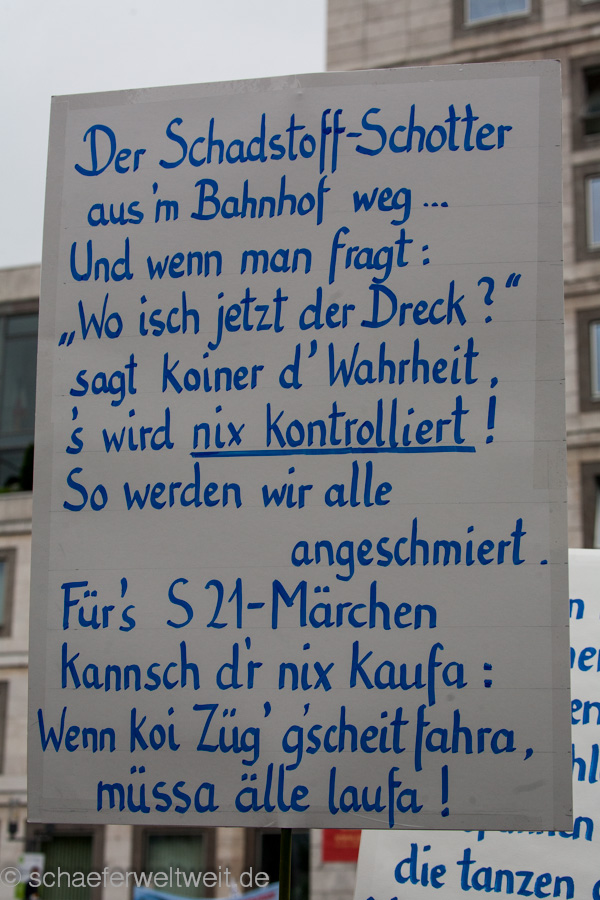 Der Schadstoff-Schotter
aus'm Bahnhof weg...
Und wenn man fragt:
„Wo isch jetzt der Dreck?“
sagt koiner d'Wahrheit,
's wird nix kontrolliert!
So werden wir alle
angeschmiert.
Für's S21-Märchen
kannsch d'r nix kaufa:
Wenn koi Züg' g'scheit fahra,
müssa älle laufa!
die tanzen
© schaeferweltweit.de